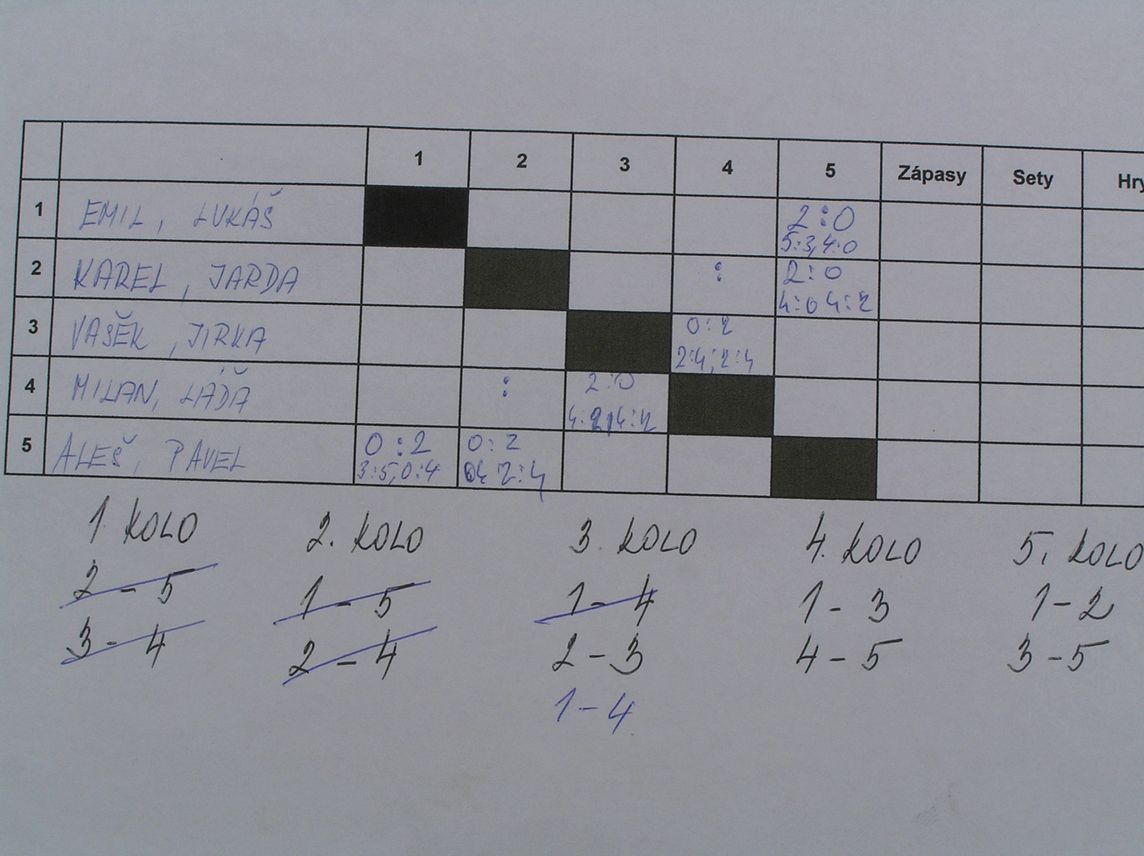 1 2 3 4 5 Zápasy Sety Hry
1 EMIL, LUKÁŠ 2:0
5:3, 4:0
2 KAREL, JARDA : 2:0
4:0 4:2
3 VAŠĚK, JIRKA 0:2
2:4; 2:4
4 MILAN, LÁĎA : 2:0
4:2, 4:2
5 ALEŠ, PAVEL 0:2 0:2
3:5, 0:4 0:4 2:4
1. KOLO 2. KOLO 3. KOLO 4. KOLO 5. KOLO
2-5 1-5 1-4 1-3 1-2
3-4 2-4 2-3 4-5 3-5
1-4